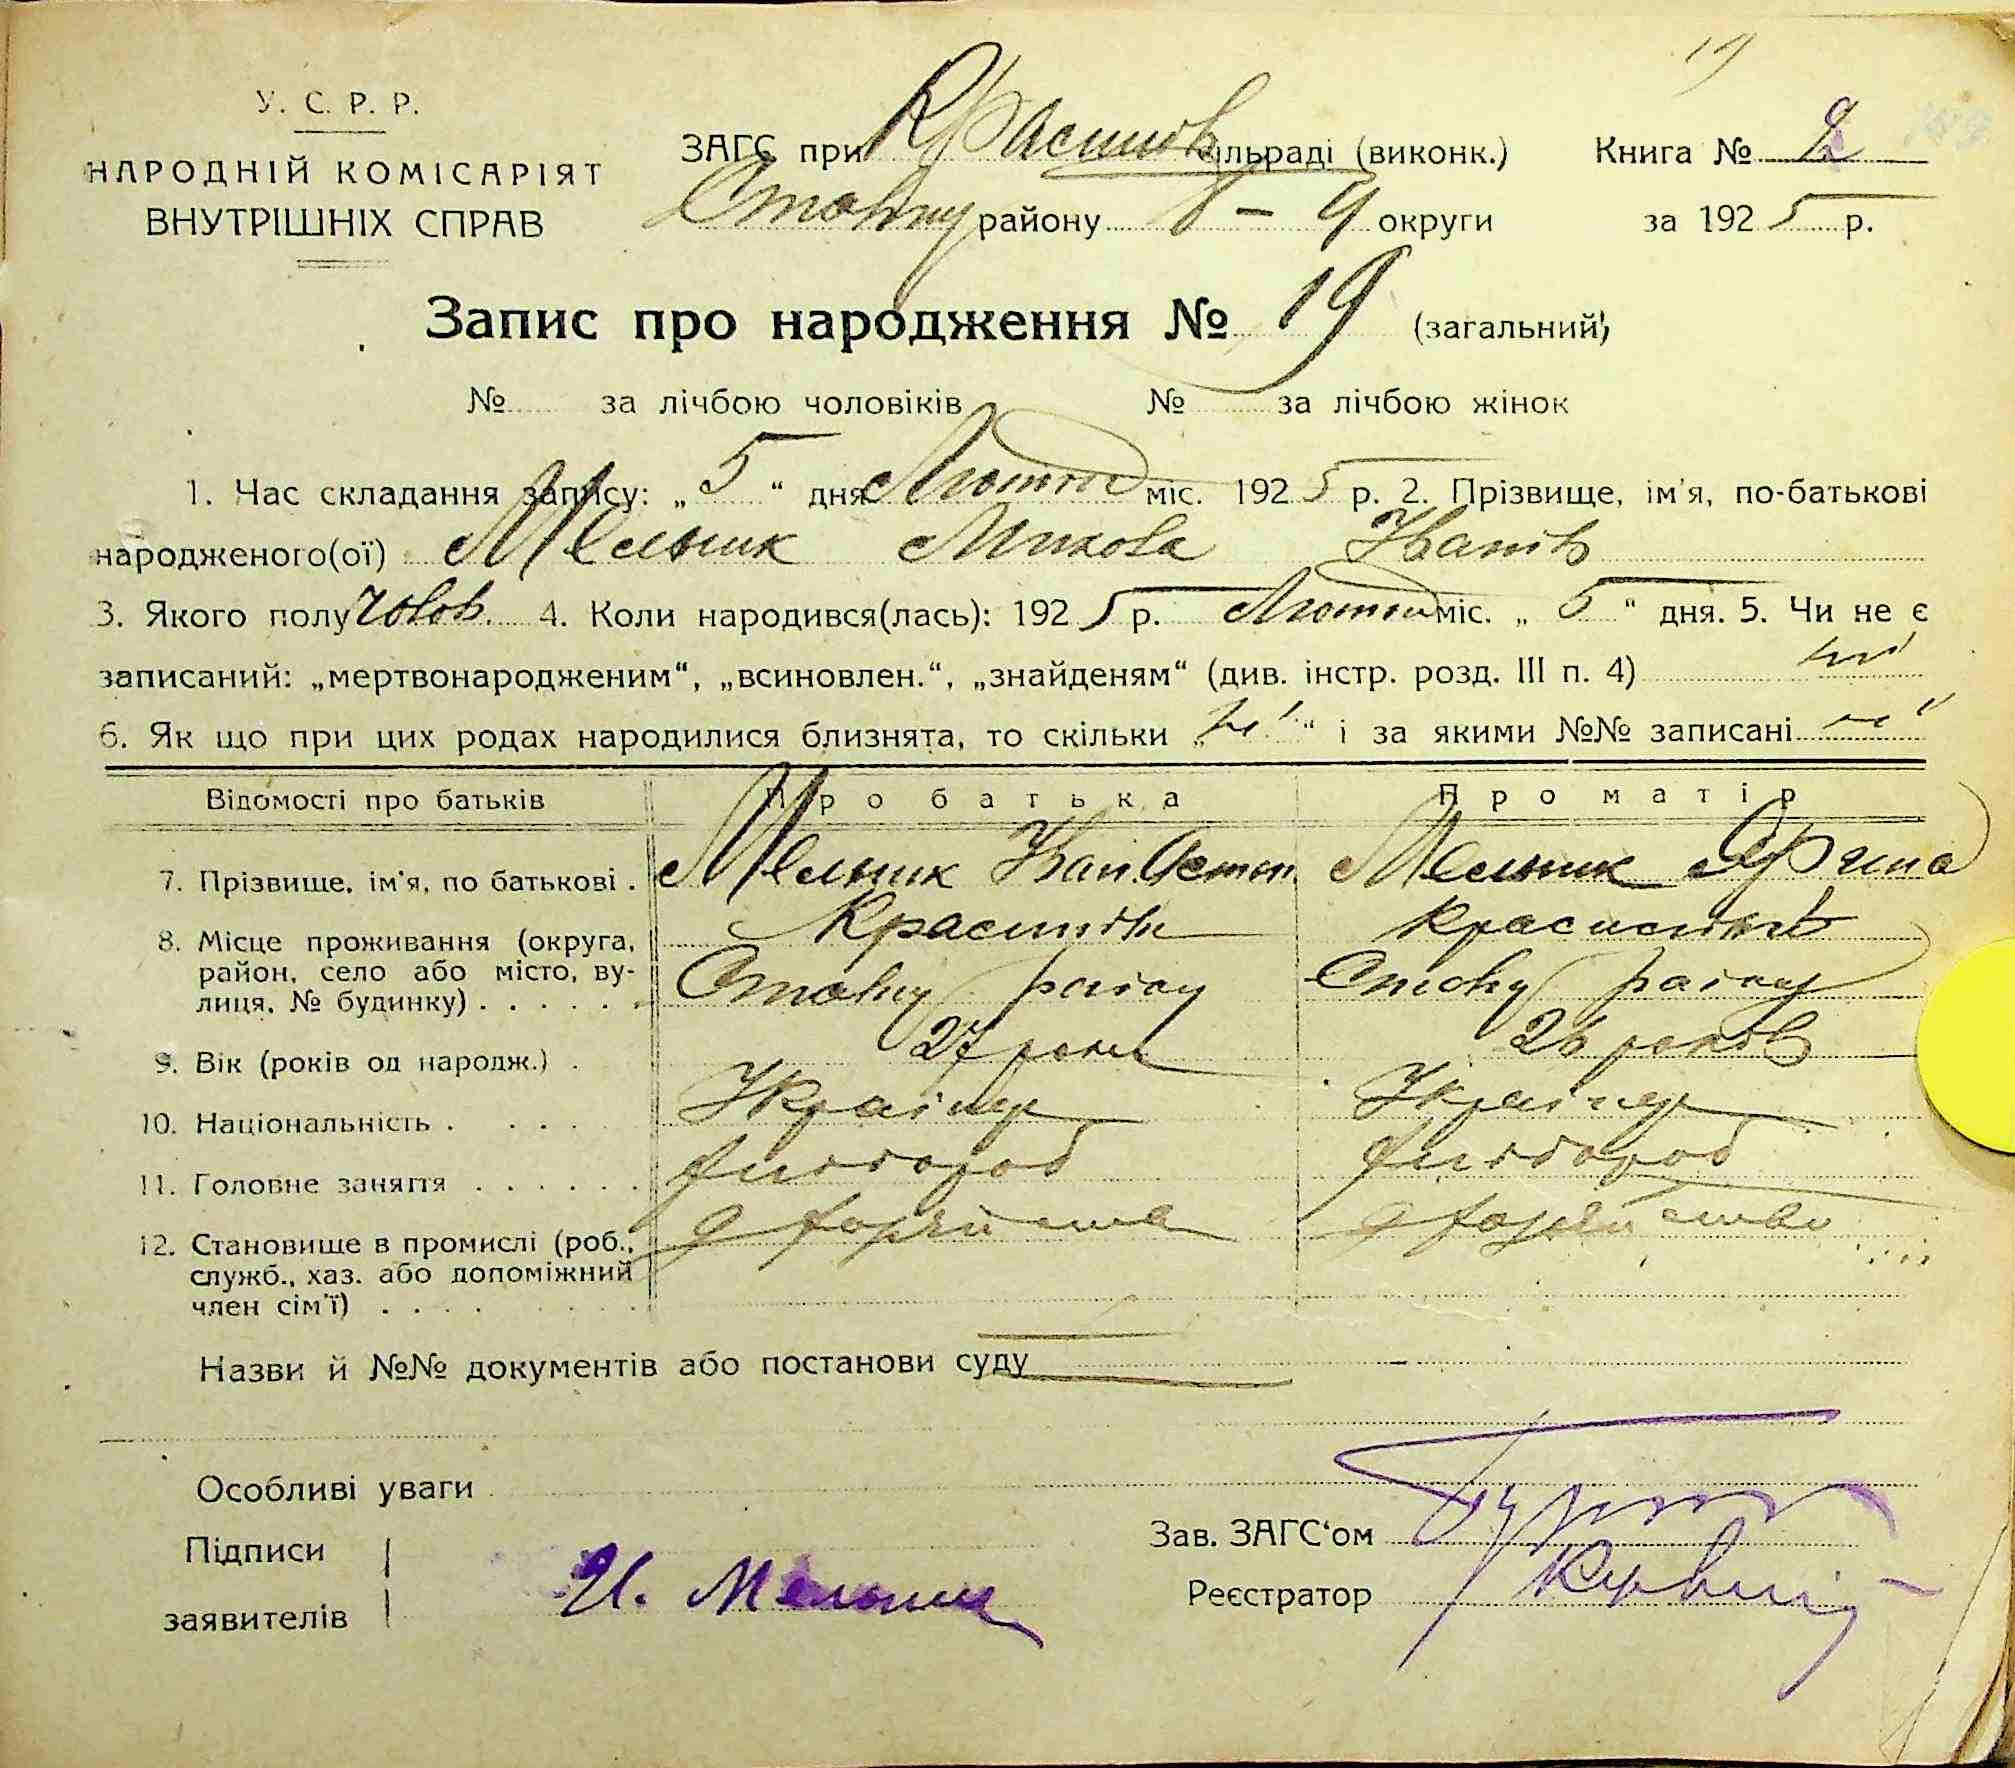 19
У. С. Р. Р.
НАРОДНІЙ КОМІСАРІЯТ
ВНУТРІШНІХ СПРАВ
ЗАГС при Красилів сільраді (виконк.) Книга № 2
району округи за 1925 р.
Запис про народження № 19 (загальний)
№ за лічбою чоловіків № за лічбою жінок
1. Час складання запису: „5“ дня Лютого міс. 1925 р. 2. Прізвище, ім'я, по-батькові
народженого(ої) Мельник Микола Іванів
3. Якого полу чолов. 4. Коли народився(лась): 1925 р. Лютого міс. „5“ дня. 5. Чи не є
записаний: „мертвонародженим“, „всиновлен.“, „знайденям“ (див. інстр. розд. III п. 4) ні
6. Як що при цих родах народилися близнята, то скільки „ні“ і за якими №№ записані ні
Відомості про батьків Про батька Про матір
7. Прізвище, ім'я, по батькові . Мельник Іван Мельник Ярина
8. Місце проживання (округа,
район, село або місто, ву-
лиця, № будинку) . . . . . . району району
9. Вік (років од народж.) . 27 роки 26 років
10. Національність . . . . Українец Українец
11. Головне заняття . . . . . . хлібороб хлібороб
12. Становище в промислі (роб.,
служб., хаз. або допоміжний
член сім'ї) . . . .
Назви й №№ документів або постанови суду
Особливі уваги
Підписи
заявителів И. Мельник
Зав. ЗАГС'ом
Реєстратор